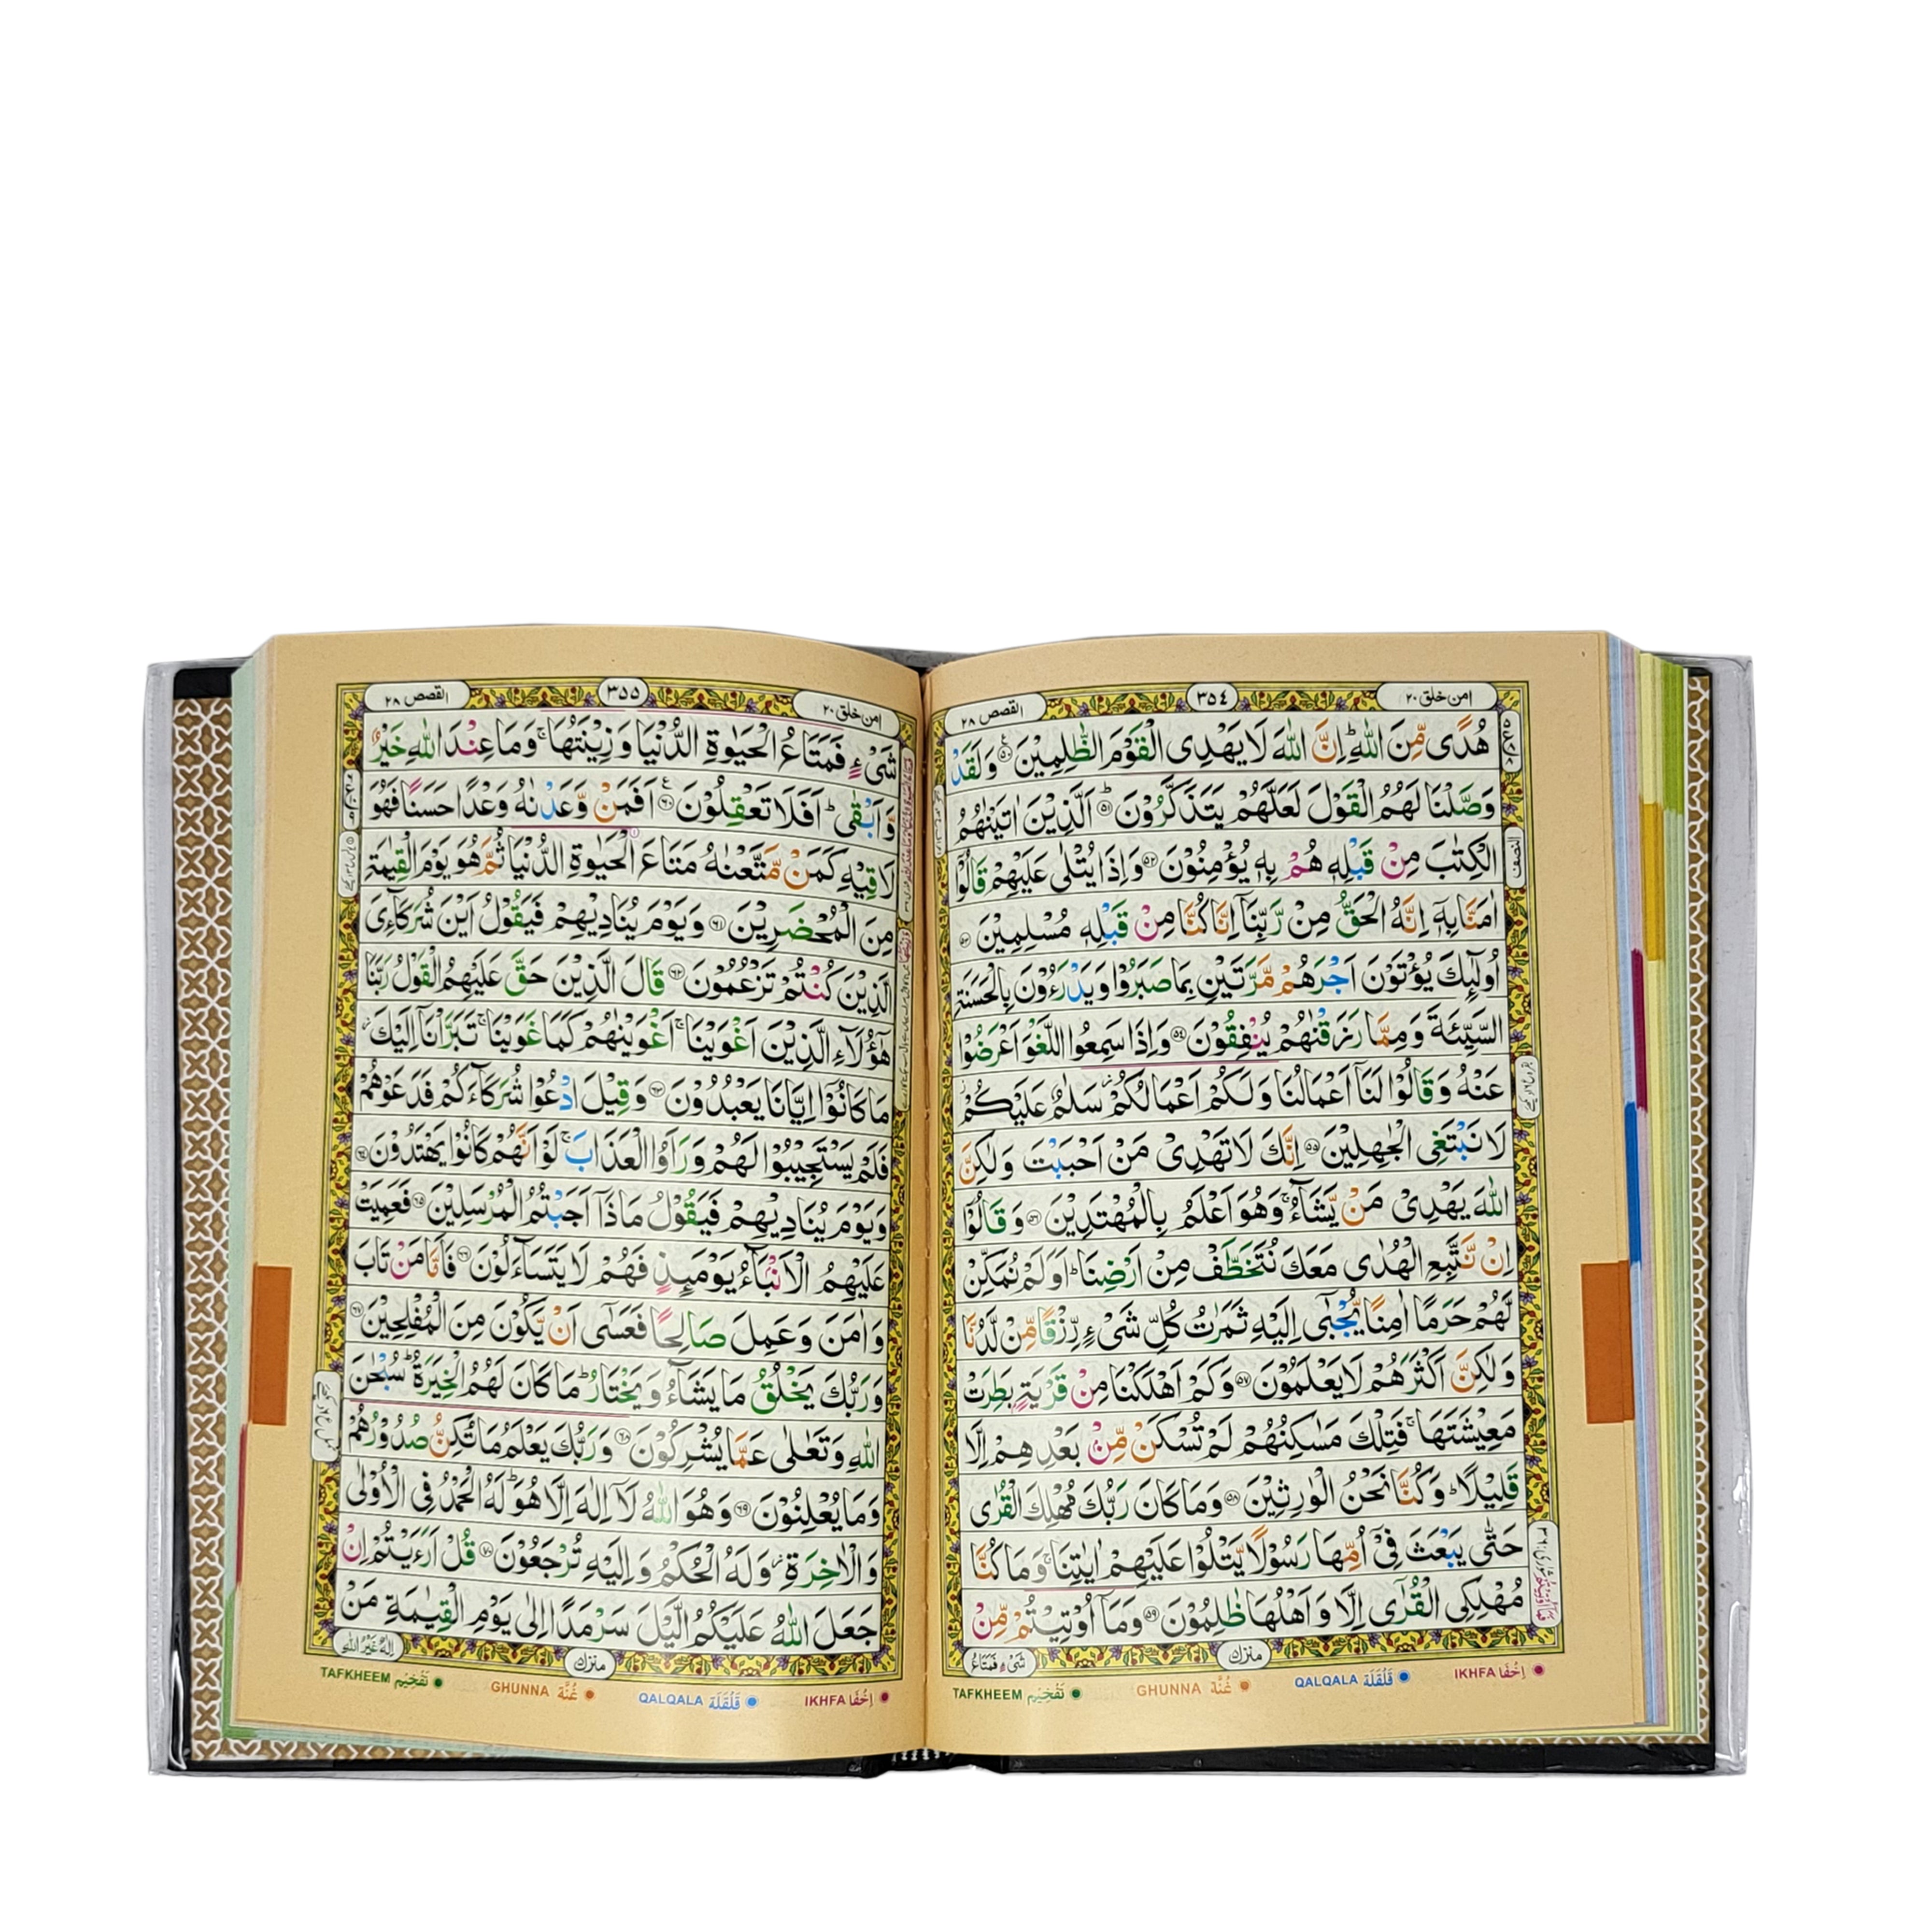 امن خلق ٢٠
٣٥٤
القصص ٢٨
هُدًى مِّنَ اللّٰهِ ؕ اِنَّ اللّٰهَ لَا يَهْدِى الْقَوْمَ الظّٰلِمِيْنَ ۝٥٠ وَلَقَدْ
وَصَّلْنَا لَهُمُ الْقَوْلَ لَعَلَّهُمْ يَتَذَكَّرُوْنَ ؕ ۝٥١ اَلَّذِيْنَ اٰتَيْنٰهُمُ
الْكِتٰبَ مِنْ قَبْلِهٖ هُمْ بِهٖ يُؤْمِنُوْنَ ۝٥٢ وَاِذَا يُتْلٰى عَلَيْهِمْ قَالُوْٓا
اٰمَنَّا بِهٖٓ اِنَّهُ الْحَقُّ مِنْ رَّبِّنَآ اِنَّا كُنَّا مِنْ قَبْلِهٖ مُسْلِمِيْنَ ۝٥٣
اُولٰٓئِكَ يُؤْتَوْنَ اَجْرَهُمْ مَّرَّتَيْنِ بِمَا صَبَرُوْا وَيَدْرَءُوْنَ بِالْحَسَنَةِ
السَّيِّئَةَ وَمِمَّا رَزَقْنٰهُمْ يُنْفِقُوْنَ ۝٥٤ وَاِذَا سَمِعُوا اللَّغْوَ اَعْرَضُوْا
عَنْهُ وَقَالُوْا لَنَآ اَعْمَالُنَا وَلَكُمْ اَعْمَالُكُمْ ز سَلٰمٌ عَلَيْكُمْ ز
لَا نَبْتَغِى الْجٰهِلِيْنَ ۝٥٥ اِنَّكَ لَا تَهْدِىْ مَنْ اَحْبَبْتَ وَلٰكِنَّ
اللّٰهَ يَهْدِىْ مَنْ يَّشَآءُ ۚ وَهُوَ اَعْلَمُ بِالْمُهْتَدِيْنَ ۝٥٦ وَقَالُوْٓا
اِنْ نَّتَّبِعِ الْهُدٰى مَعَكَ نُتَخَطَّفْ مِنْ اَرْضِنَا ؕ اَوَلَمْ نُمَكِّنْ
لَّهُمْ حَرَمًا اٰمِنًا يُّجْبٰٓى اِلَيْهِ ثَمَرٰتُ كُلِّ شَىْءٍ رِّزْقًا مِّنْ لَّدُنَّا
وَلٰكِنَّ اَكْثَرَهُمْ لَا يَعْلَمُوْنَ ۝٥٧ وَكَمْ اَهْلَكْنَا مِنْ قَرْيَةٍۭ بَطِرَتْ
مَعِيْشَتَهَا ۚ فَتِلْكَ مَسٰكِنُهُمْ لَمْ تُسْكَنْ مِّنْۢ بَعْدِهِمْ اِلَّا
قَلِيْلًا ؕ وَكُنَّا نَحْنُ الْوٰرِثِيْنَ ۝٥٨ وَمَا كَانَ رَبُّكَ مُهْلِكَ الْقُرٰى
حَتّٰى يَبْعَثَ فِىْٓ اُمِّهَا رَسُوْلًا يَّتْلُوْا عَلَيْهِمْ اٰيٰتِنَا ۚ وَمَا كُنَّا
مُهْلِكِى الْقُرٰٓى اِلَّا وَاَهْلُهَا ظٰلِمُوْنَ ۝٥٩ وَمَآ اُوْتِيْتُمْ مِّنْ
منزل
شَىْءٍ فَمَتَاعُ
IKHFA اِخْفَا
QALQALA قَلْقَلَة
GHUNNA غُنَّة
TAFKHEEM تَفْخِيْم
امن خلق ٢٠
٣٥٥
القصص ٢٨
شَىْءٍ فَمَتَاعُ الْحَيٰوةِ الدُّنْيَا وَزِيْنَتُهَا ۚ وَمَا عِنْدَ اللّٰهِ خَيْرٌ
وَّاَبْقٰى ؕ اَفَلَا تَعْقِلُوْنَ ۝٦٠ اَفَمَنْ وَّعَدْنٰهُ وَعْدًا حَسَنًا فَهُوَ
لَاقِيْهِ كَمَنْ مَّتَّعْنٰهُ مَتَاعَ الْحَيٰوةِ الدُّنْيَا ثُمَّ هُوَ يَوْمَ الْقِيٰمَةِ
مِنَ الْمُحْضَرِيْنَ ۝٦١ وَيَوْمَ يُنَادِيْهِمْ فَيَقُوْلُ اَيْنَ شُرَكَآءِىَ
الَّذِيْنَ كُنْتُمْ تَزْعُمُوْنَ ۝٦٢ قَالَ الَّذِيْنَ حَقَّ عَلَيْهِمُ الْقَوْلُ رَبَّنَا
هٰٓؤُلَآءِ الَّذِيْنَ اَغْوَيْنَا ۚ اَغْوَيْنٰهُمْ كَمَا غَوَيْنَا ۚ تَبَرَّاْنَآ اِلَيْكَ ز
مَا كَانُوْٓا اِيَّانَا يَعْبُدُوْنَ ۝٦٣ وَقِيْلَ ادْعُوْا شُرَكَآءَكُمْ فَدَعَوْهُمْ
فَلَمْ يَسْتَجِيْبُوْا لَهُمْ وَرَاَوُا الْعَذَابَ ۚ لَوْ اَنَّهُمْ كَانُوْا يَهْتَدُوْنَ ۝٦٤
وَيَوْمَ يُنَادِيْهِمْ فَيَقُوْلُ مَاذَآ اَجَبْتُمُ الْمُرْسَلِيْنَ ۝٦٥ فَعَمِيَتْ
عَلَيْهِمُ الْاَنْۢبَآءُ يَوْمَئِذٍ فَهُمْ لَا يَتَسَآءَلُوْنَ ۝٦٦ فَاَمَّا مَنْ تَابَ
وَاٰمَنَ وَعَمِلَ صَالِحًا فَعَسٰٓى اَنْ يَّكُوْنَ مِنَ الْمُفْلِحِيْنَ ۝٦٧
وَرَبُّكَ يَخْلُقُ مَا يَشَآءُ وَيَخْتَارُ ؕ مَا كَانَ لَهُمُ الْخِيَرَةُ ؕ سُبْحٰنَ
اللّٰهِ وَتَعٰلٰى عَمَّا يُشْرِكُوْنَ ۝٦٨ وَرَبُّكَ يَعْلَمُ مَا تُكِنُّ صُدُوْرُهُمْ
وَمَا يُعْلِنُوْنَ ۝٦٩ وَهُوَ اللّٰهُ لَآ اِلٰهَ اِلَّا هُوَ ؕ لَهُ الْحَمْدُ فِى الْاُوْلٰى
وَالْاٰخِرَةِ ز وَلَهُ الْحُكْمُ وَاِلَيْهِ تُرْجَعُوْنَ ۝٧٠ قُلْ اَرَءَيْتُمْ اِنْ
جَعَلَ اللّٰهُ عَلَيْكُمُ الَّيْلَ سَرْمَدًا اِلٰى يَوْمِ الْقِيٰمَةِ مَنْ
منزل
اِلٰهٌ غَيْرُ اللّٰهِ
IKHFA اِخْفَا
QALQALA قَلْقَلَة
GHUNNA غُنَّة
TAFKHEEM تَفْخِيْم
النصف